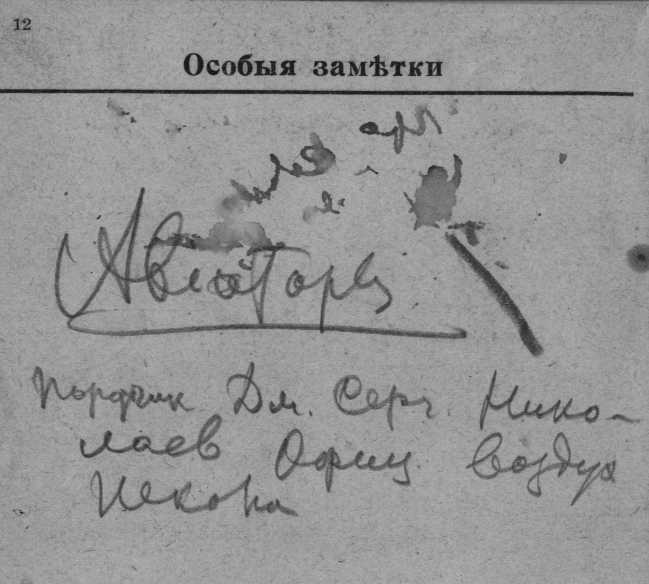 12
Особыя замѣтки
Авіаторъ
Пордчик Дм. Серг. Нико-
лаев Офиц. Воздух